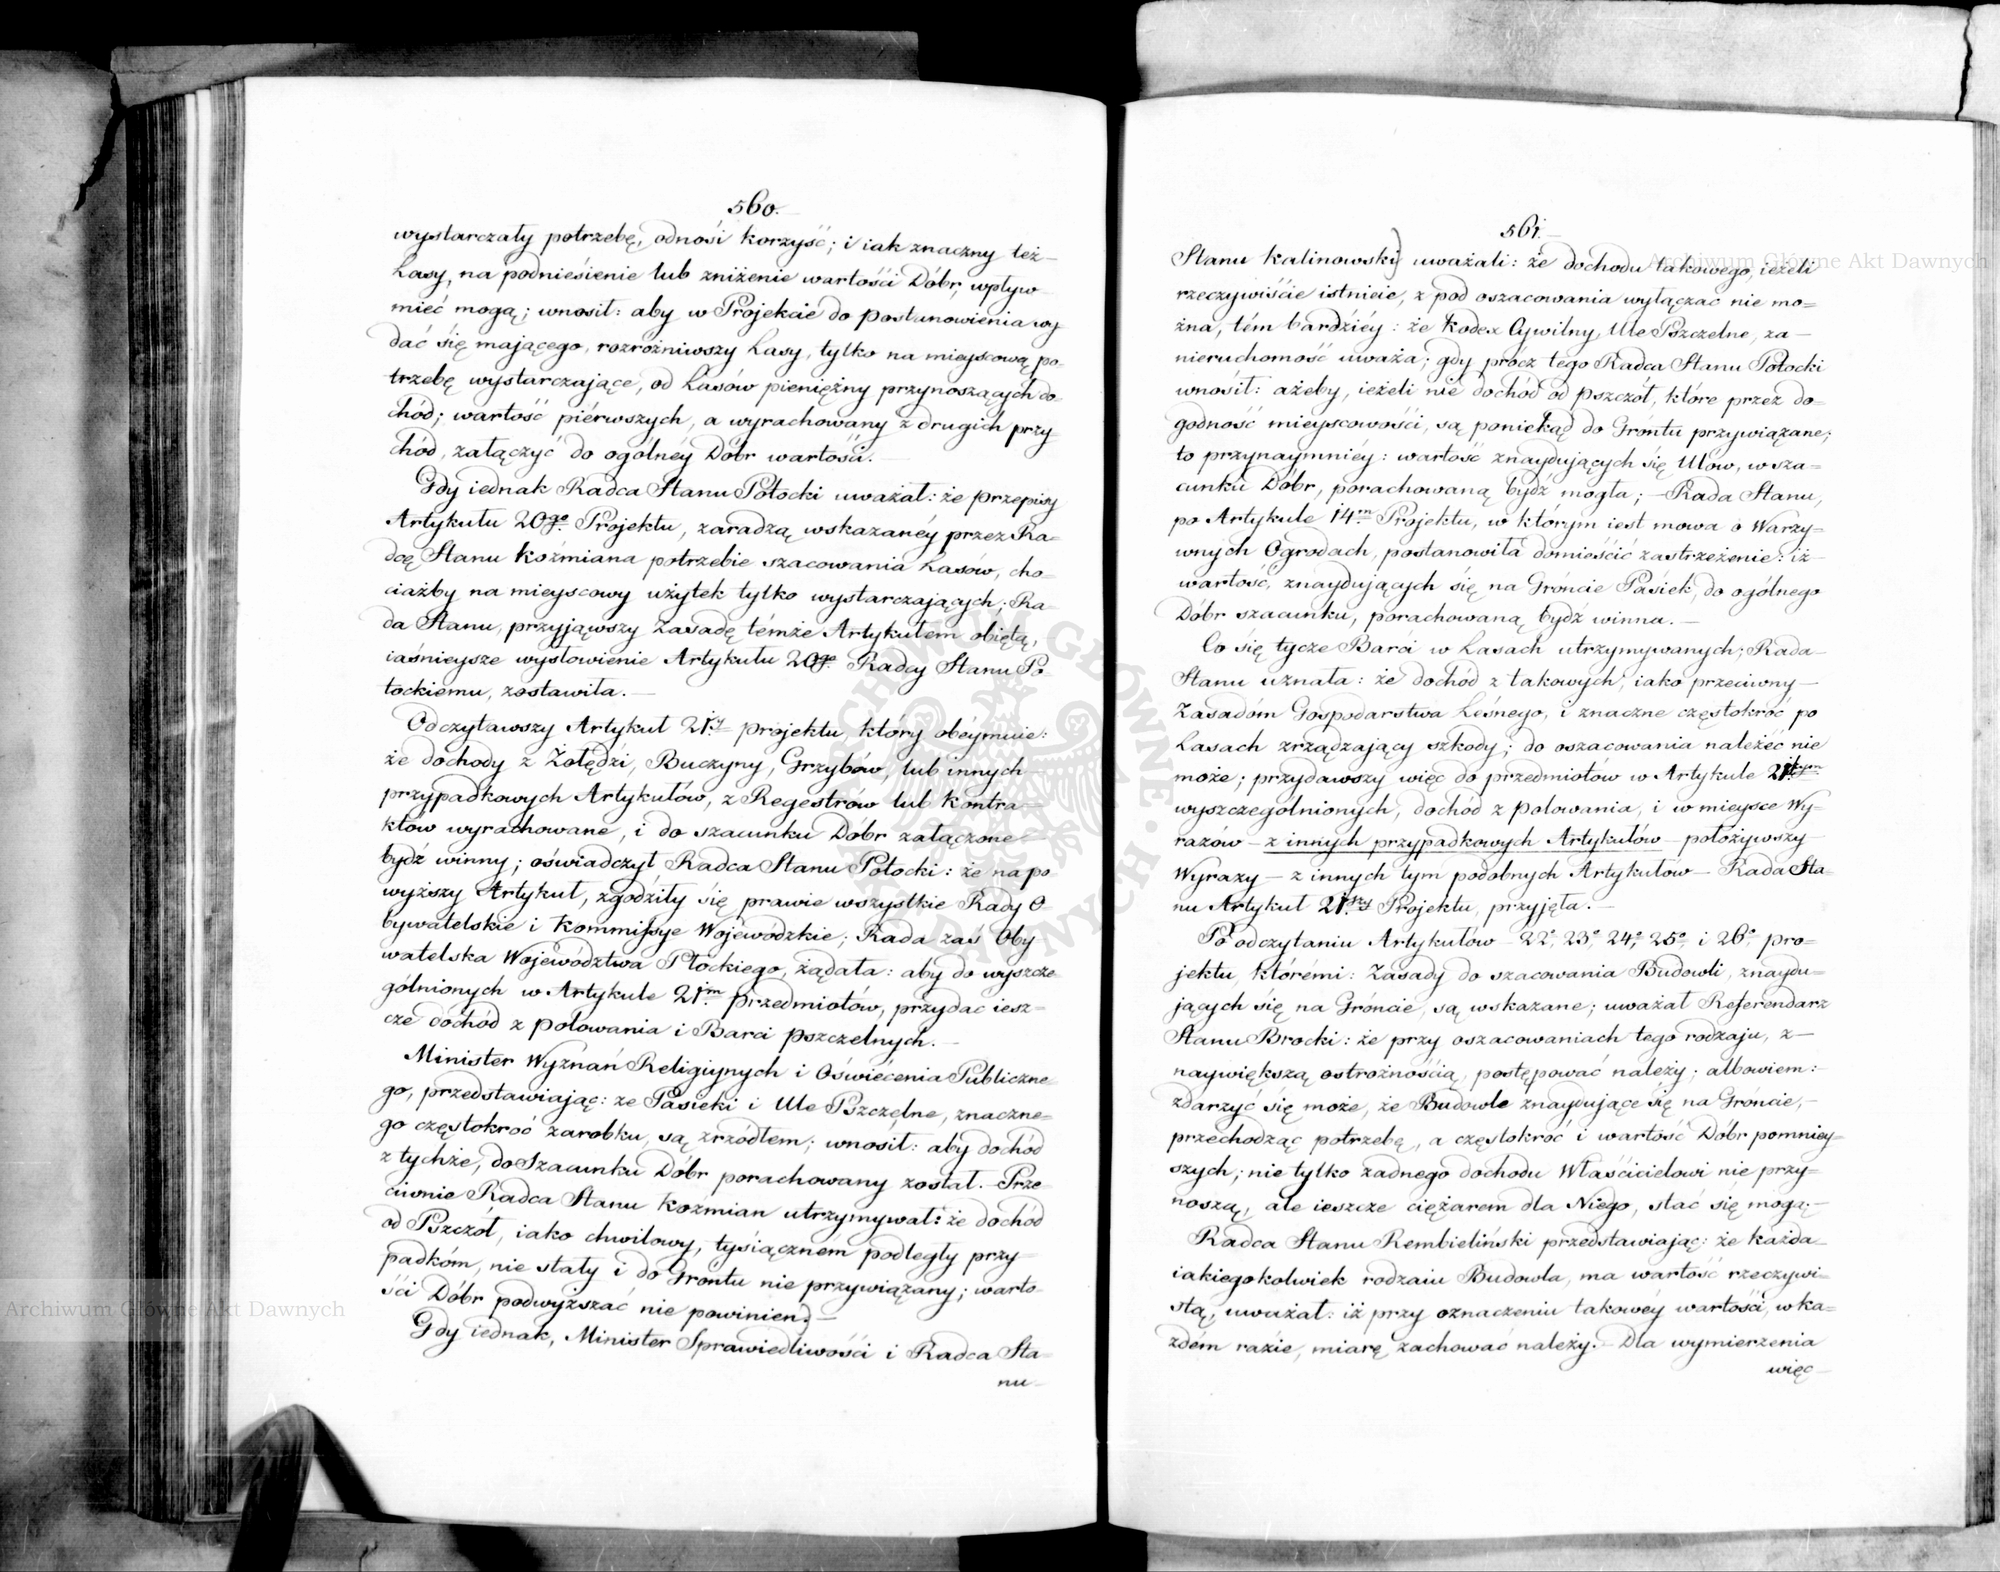 560.
wystarczały potrzebę, odnosi korzyść; i iak znaczny też
Lasy, na podniesienie lub zniżenie wartości Dóbr, wpływ
mieć mogą; wnosił: aby w Projekcie do postanowienia wy
dać się mającego, rozróżniwszy Lasy, tylko na mieyscową po-
trzebę wystarczające, od Lasów pieniężny przynoszących do-
chód; wartość piérwszych, a wyrachowany z drugich przy-
chód, załączyć do ogólnéy Dóbr wartości. —
Gdy iednak Radca Stanu Potocki uważał: że przepisy
Artykułu 20go. Projektu, zaradzą wskazanéy przez Ra-
dcę Stanu Koźmiana potrzebie szacowania Lasów, cho-
ciażby na mieyscowy użytek tylko wystarczających; Ra-
da Stanu, przyjąwszy Zasadę témże Artykułem obiętą,
iaśnieysze wysłowienie Artykułu 20go. Radcy Stanu Po-
tockiemu, zostawiła. —
Odczytawszy Artykuł 21szy projektu, który obéymuie:
że dochody z Żołędzi, Buczyny, Grzybów, lub innych —
przypadkowych Artykułów, z Regestrów lub Kontra-
któw wyrachowane, i do szacunku Dóbr załączone —
bydź winny; oświadczył Radca Stanu Potocki: że na po
wyższy Artykuł, zgodziły się prawie wszystkie Rady O-
bywatelskie i Kommissye Wojewódzkie; Rada zaś Oby-
watelska Województwa Płockiego, żądała: aby do wyszcze-
gólnionych w Artykule 21m. przedmiotów, przydać iesz-
cze dochód z polowania i Barci pszczelnych. —
Minister Wyznań Religiynych i Oświécenia Publiczne-
go, przedstawiając: że Pasieki i Ule Pszczelne, znaczne-
go częstokroć zarobku, są zrzódłem; wnosił: aby dochód
z tychże, do Szacunku Dóbr porachowany został. – Prze-
ciwnie Radca Stanu Koźmian utrzymywał: że dochód
od Pszczół, iako chwilowy, tysiącznem podległy przy-
padkóm, nie stały i do Grontu nie przywiązany; warto-
ści Dóbr podwyższać nie powinien. —
Gdy iednak, Minister Sprawiedliwości i Radca Sta-
nu —
561.
Stanu Kalinowski) uważali: że dochodu takowego, ieżeli
rzeczywiście istnieie, z pod oszacowania wyłączać nie mo-
żna, tém bardziéy: że Kodex Cywilny, Ule Pszczelne, za —
nieruchomość uważa; gdy prócz tego Radca Stanu Potocki
wnosił: ażeby, ieżeli nie dochód od pszczół, które przez do-
godność mieyscowości, są poniekąd do Grontu przywiązane;
to przynaymniéy: wartość znaydujących się Ulów, w sza-
cunku Dóbr, porachowaną bydź mogła; — Rada Stanu,
po Artykule 14m. Projektu, w którym iest mowa o Warzy-
wnych Ogrodach, postanowiła domieścić zastrzeżenie: iż
wartość, znaydujących się na Gróncie Pasiek, do ogólnego
Dóbr szacunku, porachowaną bydź winna. —
Co się tycze Barci w Lasach utrzymywanych; Rada
Stanu uznała: że dochód z takowych, iako przeciwny —
Zasadóm Gospodarstwa Leśnego, i znaczne częstokroć po
Lasach zrządzający szkody; do oszacowania należéć nie
może; przydawszy więc do przedmiotów w Artykule
wyszczególnionych, dochód z polowania, i w mieysce Wy-
razów — z innych przypadkowych Artykułów — położywszy
Wyrazy — z innych tym podobnych Artykułów — Rada Sta-
nu Artykuł 21szy Projektu, przyjęła. —
Po odczytaniu Artykułów 22° 23° 24° 25° i 26° pro-
jektu, którémi: Zasady do szacowania Budowli, znaydu-
jących się na Gróncie, są wskazane; uważał Referendarz
Stanu Brocki: że przy oszacowaniach tego rodzaju, z —
naywiększą ostrożnością, postępować należy; albowiem: —
zdarzyć się może, że Budowle znaydujące się na Gróncie, —
przechodząc potrzebę, a częstokroć i wartość Dóbr pomniey-
szych; nie tylko żadnego dochodu Właścicielowi nie przy-
noszą, ale ieszcze ciężarem dla Niego, stać się mogą. —
Radca Stanu Rembieliński przedstawiając: że każda
iakiegokolwiek rodzaiu Budowla, ma wartość rzeczywi-
stą, uważał: iż przy oznaczeniu takowéy wartości, w ka-
żdém razie, miarę zachować należy. – Dla wymierzenia
więc —
Archiwum Główne Akt Dawnych
Archiwum Główne Akt Dawnych
ARCHIWUM GŁÓWNE AKT DAWNYCH